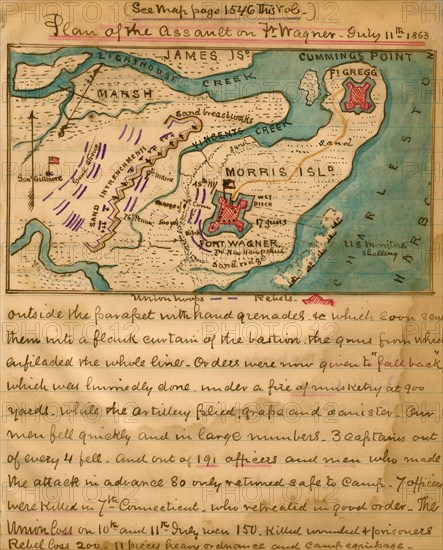 (See Map page 1546 This Vol.)
Plan of the Assault on Ft Wagner - July 11th 1863
JAMES ISD
CUMMINGS POINT
LIGHTHOUSE CREEK
FT GREGG
MARSH
Sand breastworks
VINCENTS CREEK
sand
Genl Gillmore
SAND INTRENCHMENTS
MORRIS ISLD
WET DITCH
17 guns
FORT WAGNER
Sand ridge
US Monitors Shelling
CHARLESTON HARBOR
Union troops
Rebels
outside the parapet with hand grenades. & which soon sent
them into a flank curtain of the bastion. the guns from which
enfiladed the whole line. Orders were now given to "fall back"
which was hurriedly done. under a fire of musketry at 900
yards. while the artillery plied grape and canister. Our
men fell quickly and in large numbers. 3 captains out
of every 4 fell. And out of 191 officers and men who made
the attack in advance 80 only returned safe to Camp. 7 officers
were killed in 7th Connecticut. who retreated in good order. The
Union loss on 10th and 11th July were 150. Killed wounded & prisoners
Rebel loss 200. 11 pieces heavy ordnance and camp equipage.